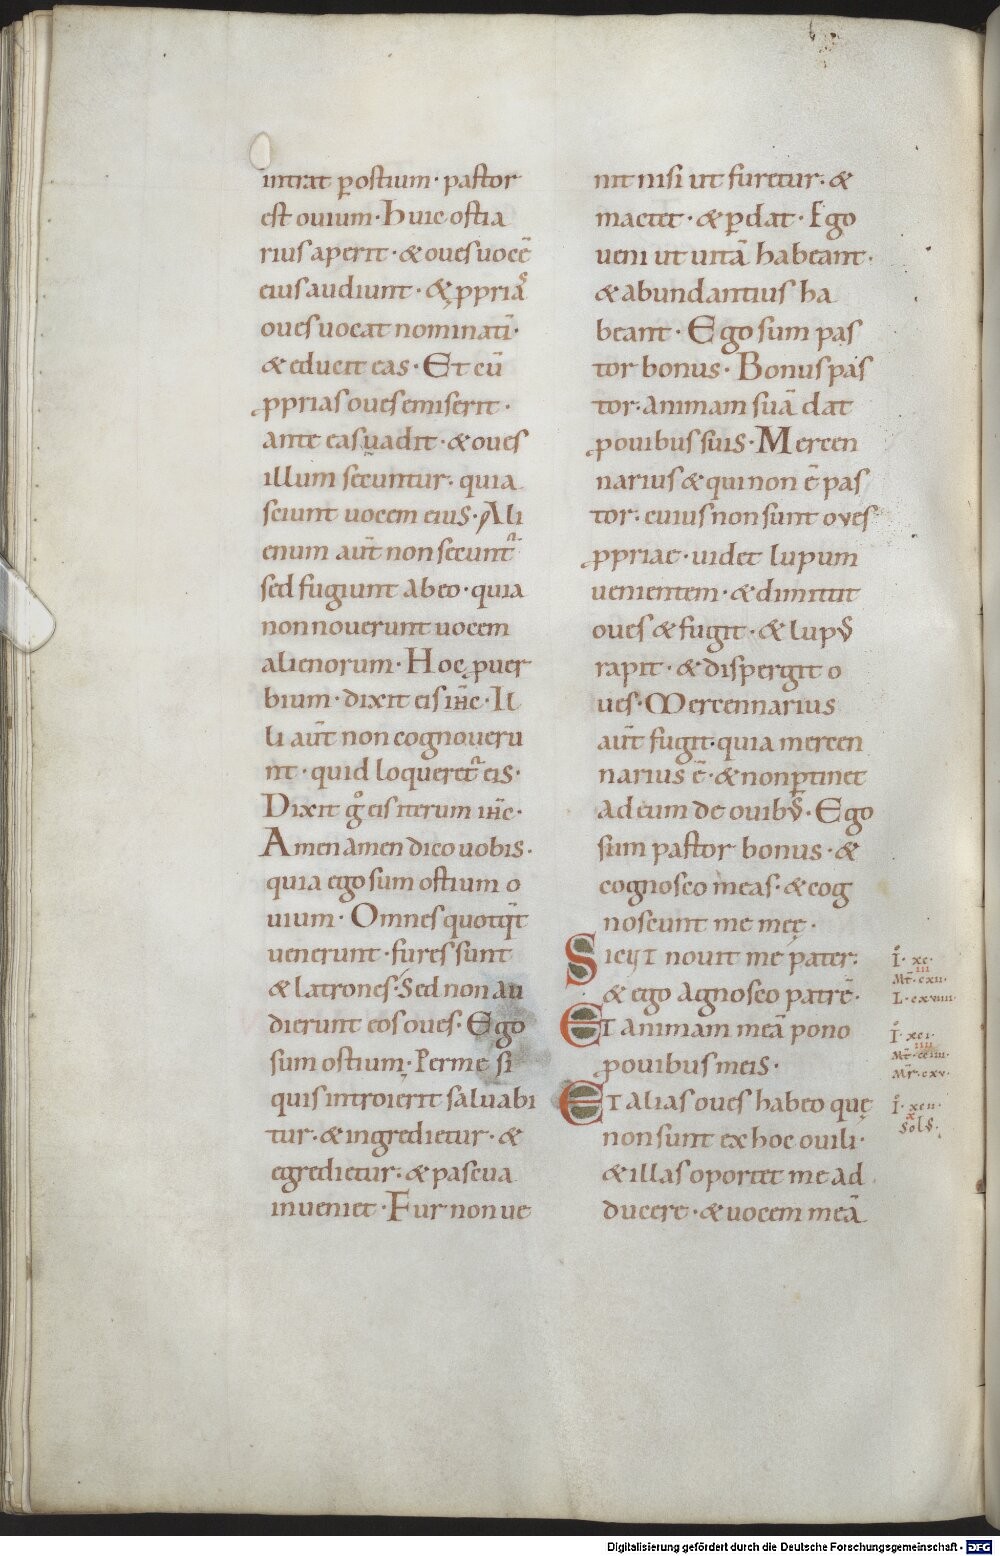 intrat ꝑ ostium · pastor
est ouium · Huic ostia
rius aperit · & oues uocē
eius audiunt · & ꝓpriaˢ
oues uocat nominatī ·
& educit eas · Et cū
ꝓprias oues emiserit ·
ante eas uadit · & oues
illum secūntur · quia
sciunt uocem eius · Ali
enum aut̄ non secunt᷑
sed fugiunt ab eo · quia
non nouerunt uocem
alienorum · Hoc ꝓuer
bium · dixit eis ihc̄ · Il
li aut̄ non cognoueru
nt · quid loqueret᷑ eis ·
Dixit gͦ eis iterum ihc̄ ·
Amen amen dico uobis ·
quia ego sum ostium o
uium · Omnes quotq̄t
uenerunt · fures sunt
& latrones · Sed non au
dierunt eos oues · Ego
sum ostium · Per me si
quis introierit saluabi
tur · & ingredietur · &
egredietur · & pascua
inueniet · Fur non ue
nit nisi ut furetur · &
mactet · & ꝑdat · Ego
ueni ut uitā habeant ·
& abundantius ha
beant · Ego sum pas
tor bonus · Bonus pas
tor · animam suā dat
ꝓ ouibus suis · Mercen
narius & qui non ē pas
tor · cuius non sunt oues
ꝓpriae · uidet lupum
uenientem · & dimittit
oues & fugit · & lupꝰ
rapit · & dispergit o
ues · Mercennarius
aut̄ fugit · quia mercen
narius ē · & non ꝑtinet
ad eum de ouibꝰ · Ego
sum pastor bonus · &
cognosco meas · & cog
noscunt me meę ·
Sicut nouit me pater ·
& ego agnosco patrē ·
Et animam meā pono
ꝓ ouibus meis ·
Et alias oues habeo quę
non sunt ex hoc ouili ·
& illas oportet me ad
ducere · & uocem meā
Iͦ · xc ·
III
Mt̄ · cxii ·
L · cxviiii ·
Iͦ · xci ·
IIII
Mt̄ · cciiii ·
Mr̄ · cxv ·
Iͦ · xcii ·
x
Solꝰ ·
Digitalisierung gefördert durch die Deutsche Forschungsgemeinschaft - DFG